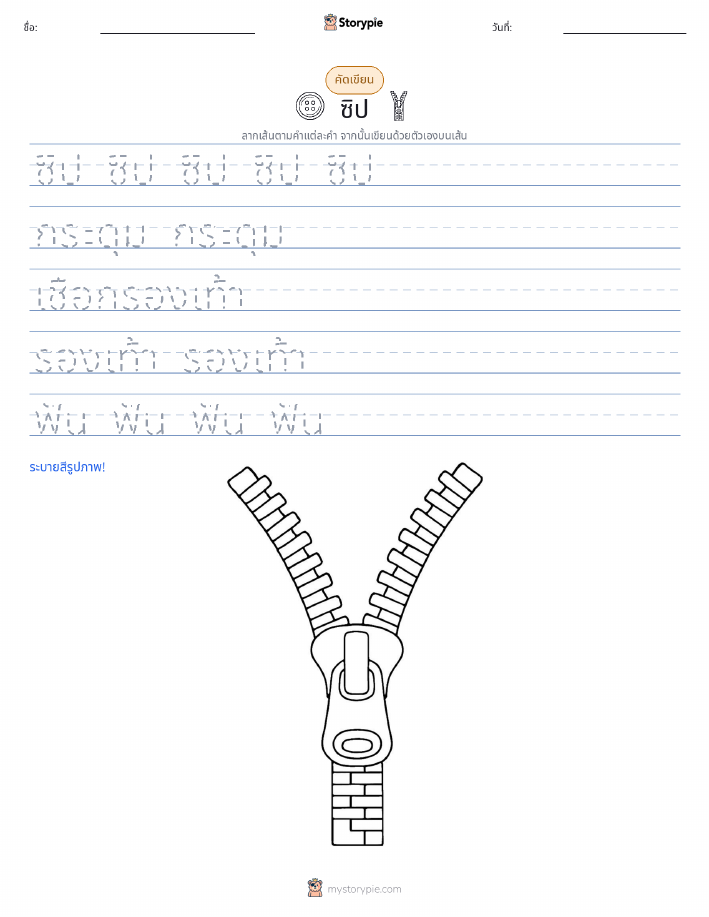 ชื่อ:
Storypie
วันที่:
คัดเขียน
ซิป
ลากเส้นตามคำแต่ละคำ จากนั้นเขียนด้วยตัวเองบนเส้น
ซิป ซิป ซิป ซิป ซิป
กระดุม กระดุม
เชือกรองเท้า
รองเท้า รองเท้า
ฟัน ฟัน ฟัน ฟัน
ระบายสีรูปภาพ!
mystorypie.com